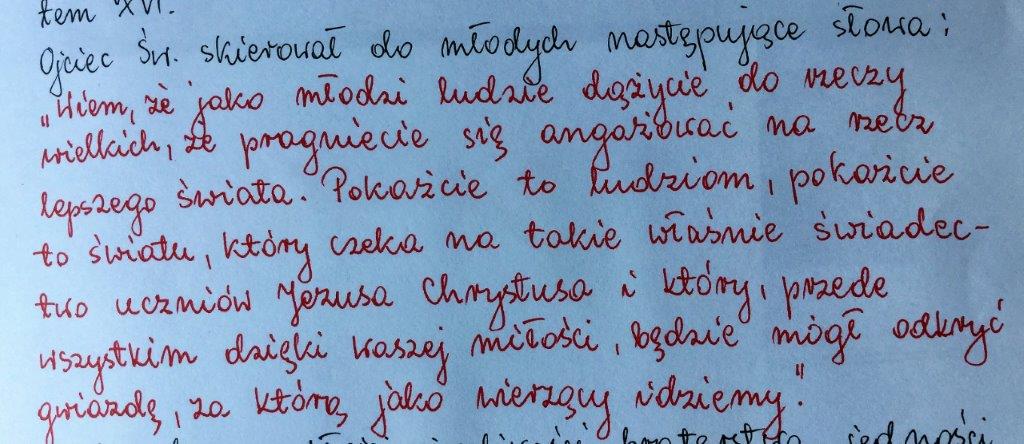 tem XVI.
Ojciec Św. skierował do młodych następujące słowa:
„Wiem, że jako młodzi ludzie dążycie do rzeczy
wielkich, że pragniecie się angażować na rzecz
lepszego świata. Pokażcie to ludziom, pokażcie
to światu, który czeka na takie właśnie świadec-
two uczniów Jezusa Chrystusa i który, przede
wszystkim dzięki waszej miłości, będzie mógł odkryć
gwiazdę, za którą jako wierzący idziemy."
jedności